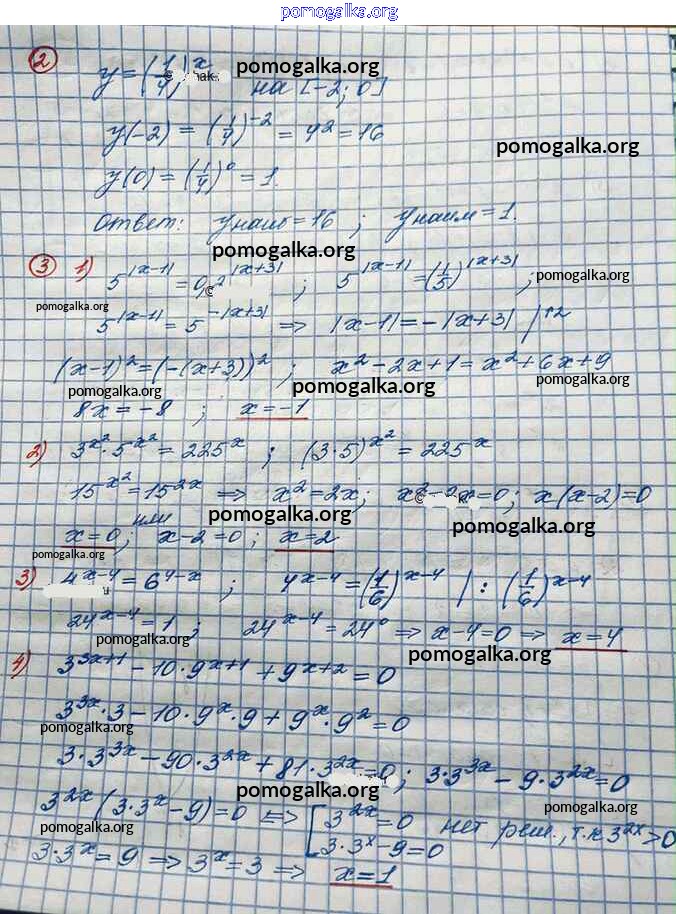 pomogalka.org
2 y = (1/4)^x на [-2; 0]
pomogalka.org
y(-2) = (1/4)^-2 = 4^2 = 16
pomogalka.org
y(0) = (1/4)^0 = 1.
Ответ: y наиб = 16 ; y наим = 1.
pomogalka.org
3 1) 5^|x-1| = 0,2^|x+3| ; 5^|x-1| = (1/5)^|x+3| ;
pomogalka.org
pomogalka.org
5^|x-1| = 5^-|x+3| ⇒ |x-1| = -|x+3| |↑2
(x-1)^2 = (-(x+3))^2 ; x^2 - 2x + 1 = x^2 + 6x + 9
pomogalka.org pomogalka.org pomogalka.org
8x = -8 ; x = -1
2) 3^x^2 · 5^x^2 = 225^x ; (3·5)^x^2 = 225^x
15^x^2 = 15^2x ⇒ x^2 = 2x; x^2 - 2x = 0; x(x-2) = 0
pomogalka.org pomogalka.org
x = 0; или x - 2 = 0 ; x = 2
pomogalka.org
3) 4^x-4 = 6^4-x ; 4^x-4 = (1/6)^x-4 | : (1/6)^x-4
24^x-4 = 1 ; 24^x-4 = 24^0 ⇒ x-4 = 0 ⇒ x = 4
pomogalka.org pomogalka.org
4) 3^3x+1 - 10·9^x+1 + 9^x+2 = 0
3^3x · 3 - 10·9^x · 9 + 9^x · 9^2 = 0
pomogalka.org
3·3^3x - 90·3^2x + 81·3^2x = 0; 3·3^3x - 9·3^2x = 0
pomogalka.org pomogalka.org
3^2x (3·3^x - 9) = 0 ⇔ [ 3^2x = 0 нет реш., т.к 3^2x > 0
pomogalka.org
3·3^x - 9 = 0
3·3^x = 9 ⇒ 3^x = 3 ⇒ x = 1